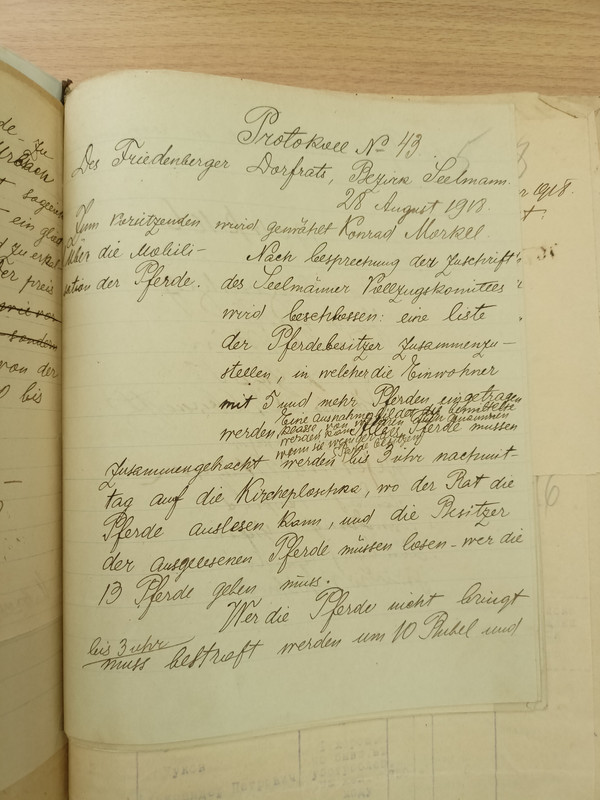 Protokoll No 43
Des Friedenberger Dorfrats, Bezirk Seelmann.
28 August 1918.
Zum Vorsitzenden wird gewählt Konrad Morkel.
Über die Mobili-
sation der Pferde.
Nach besprechung der Zuschrift
des Seelmänner Vollzugskomittes
wird beschlossen: eine liste
der Pferdebesitzer Zusammenzu-
stellen, in welcher die Einwohner
mit 5 und mehr Pferden, eingetragen
werden. Alle Pferde müssen
Eine ausnahme bildet die bemittelte
klasse, von welchen genommen
werden kann
wenn sie weniger Pferde besitzen
Zusammengebracht werden bis 3 uhr nachmit-
tag auf die Kircheploschka, wo der Rat die
Pferde auslesen kann, und die Besitzer
der ausgelesenen Pferde müssen losen - wer die
13 Pferde geben muss.
Wer die Pferde nicht bringt
bis 3 uhr
muss bestraft werden um 10 Rubel und